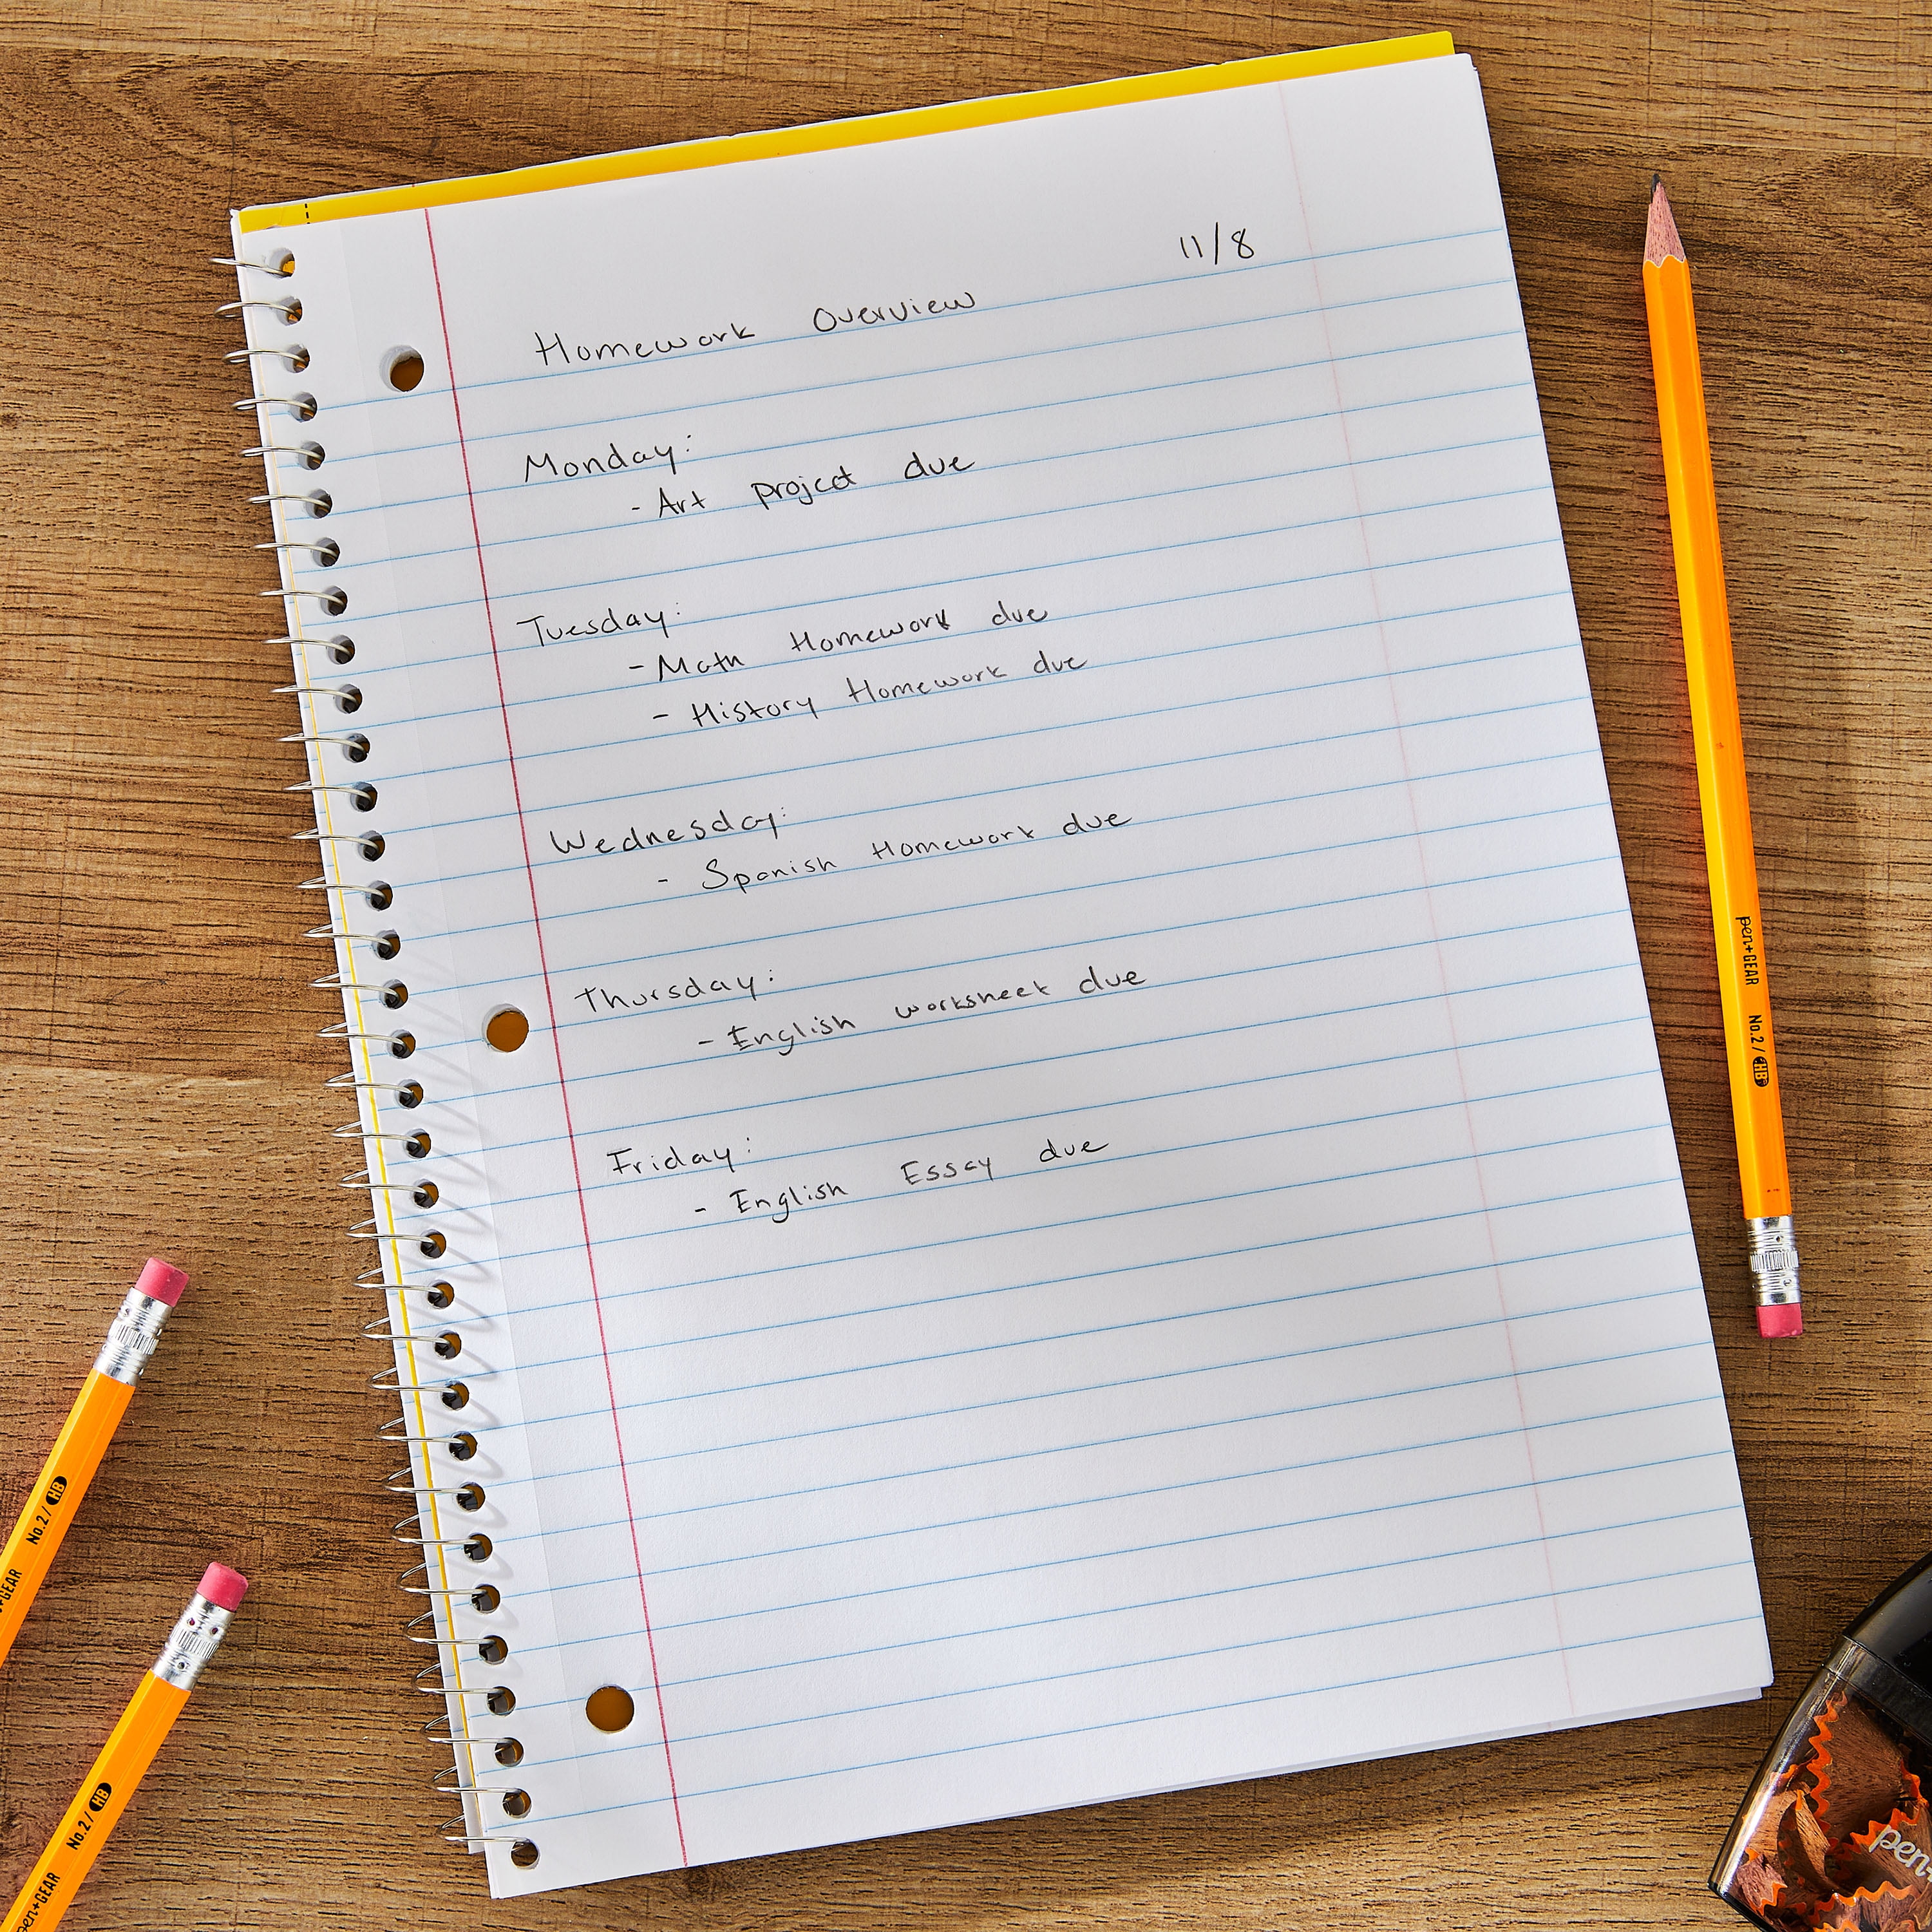 11/8
Homework Overview
Monday:
- Art project due
Tuesday:
- Math Homework due
- History Homework due
Wednesday:
- Spanish Homework due
Thursday:
- English worksheet due
Friday:
- English Essay due
pen+GEAR No.2/ HB
No.2/ HB
+GEAR
pen+GEAR No.2/ HB
pen+